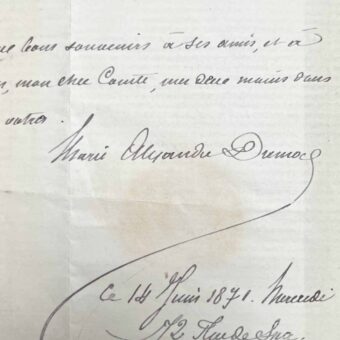 bons souvenirs à ses amis, et à
, mon cher Comte, mes deux mains dans
votres.
Marie Alexandre Dumas
Ce 14 Juin 1871. Mercredi
72 Rue de Spa.